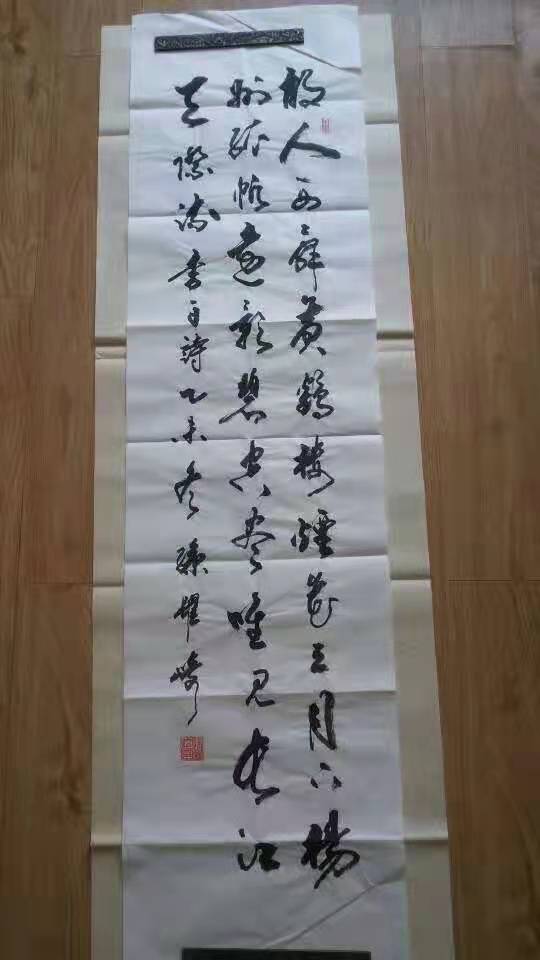 故人西辭黃鶴樓煙花三月下揚
州孤帆遠影碧空盡唯見長江
天際流李白詩乙未冬孫耀